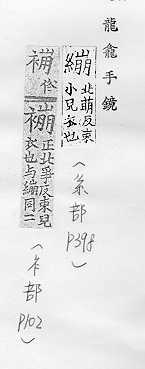 龍龕手鏡
繃 北萌反束
小兒衣也
(糸部 P398)
俗
正北爭反束兒
衣也与繃同二
(衤部 P102)